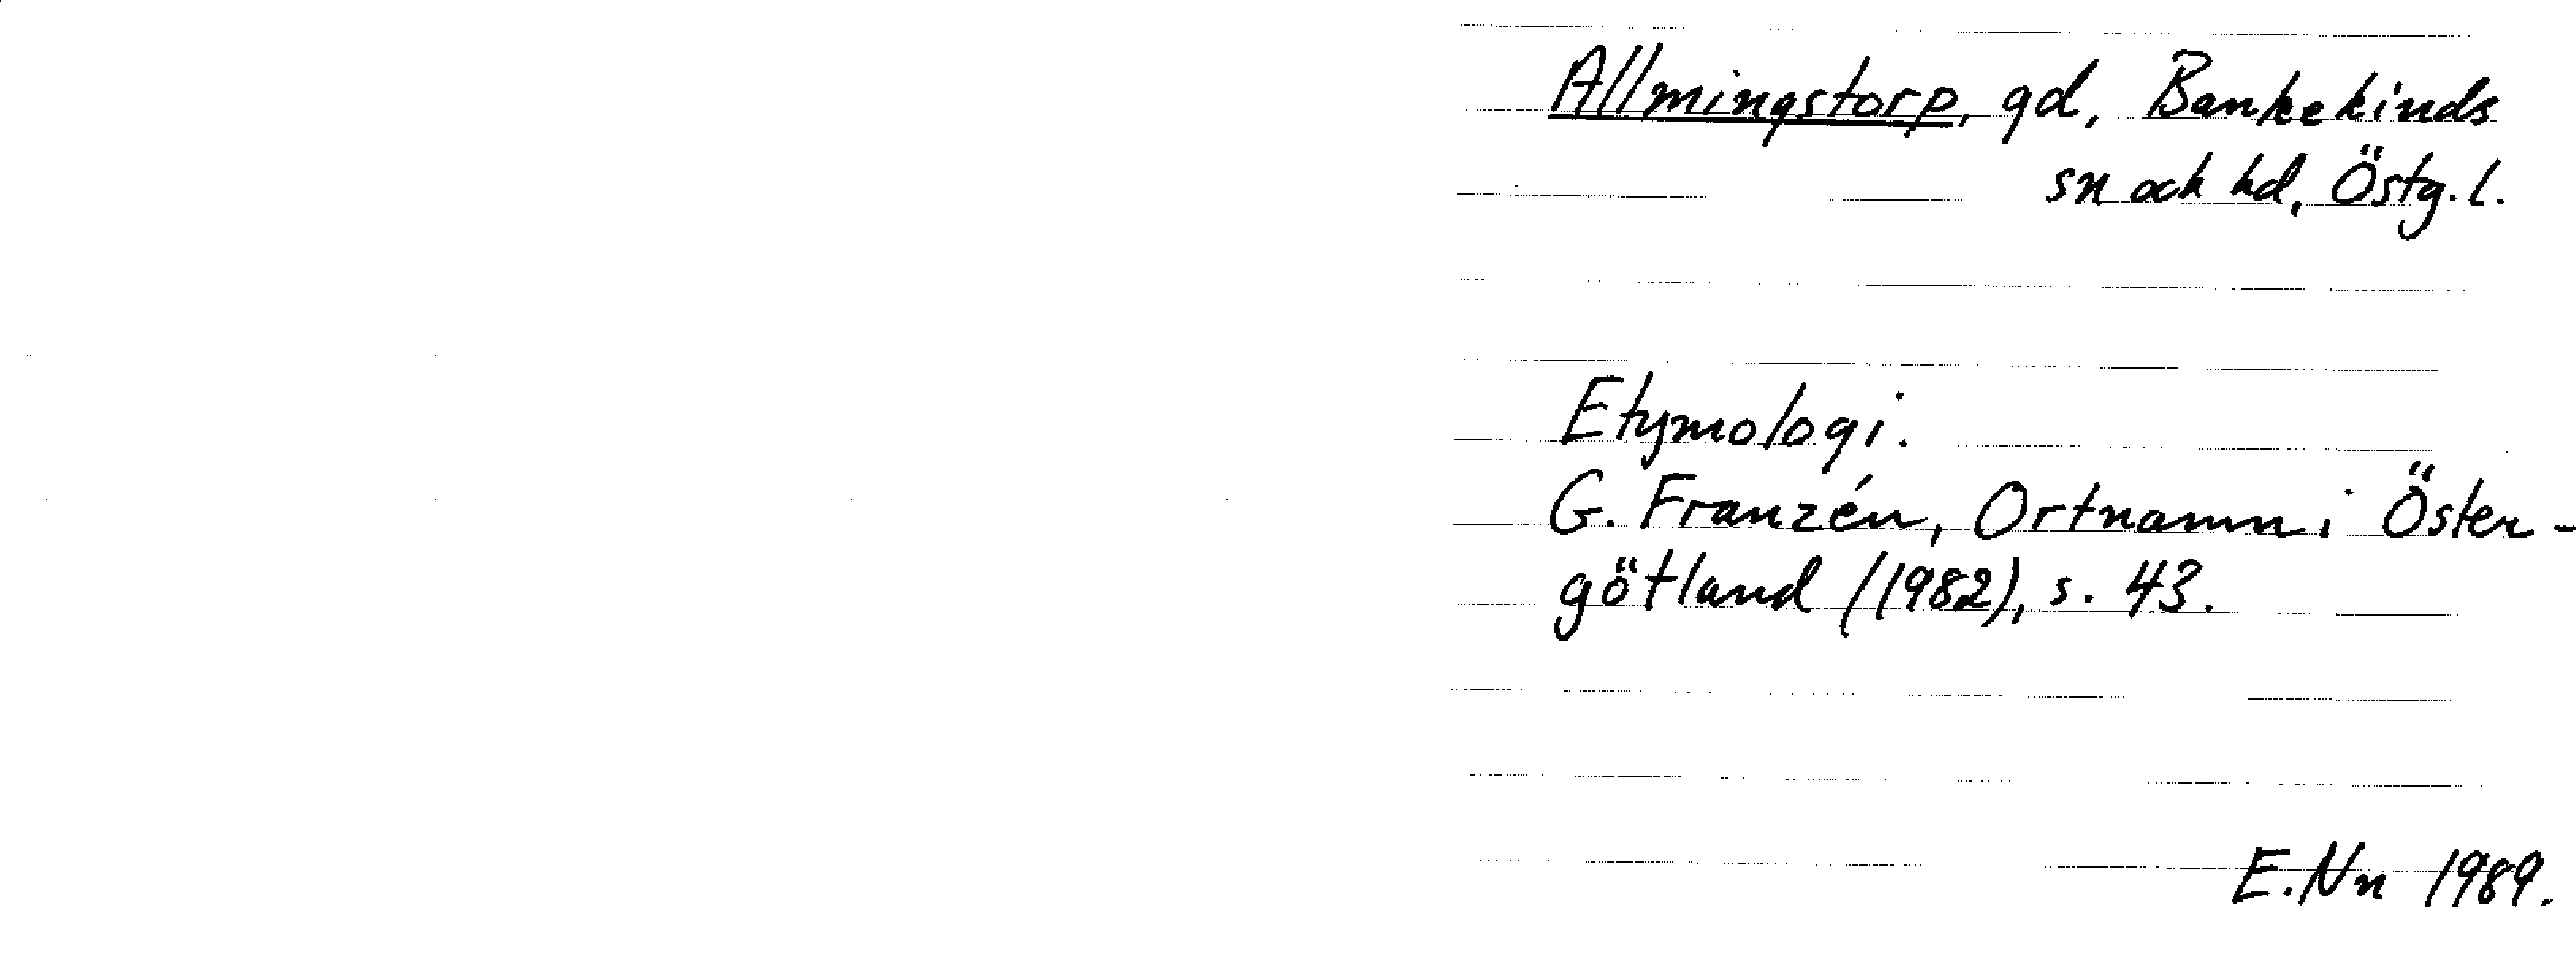 Allmingstorp, gd, Bankekinds
sn och hd, Östg. l.
Etymologi.
G. Franzén, Ortnamn i Öster-
götland (1982), s. 43.
E. Nn 1989.